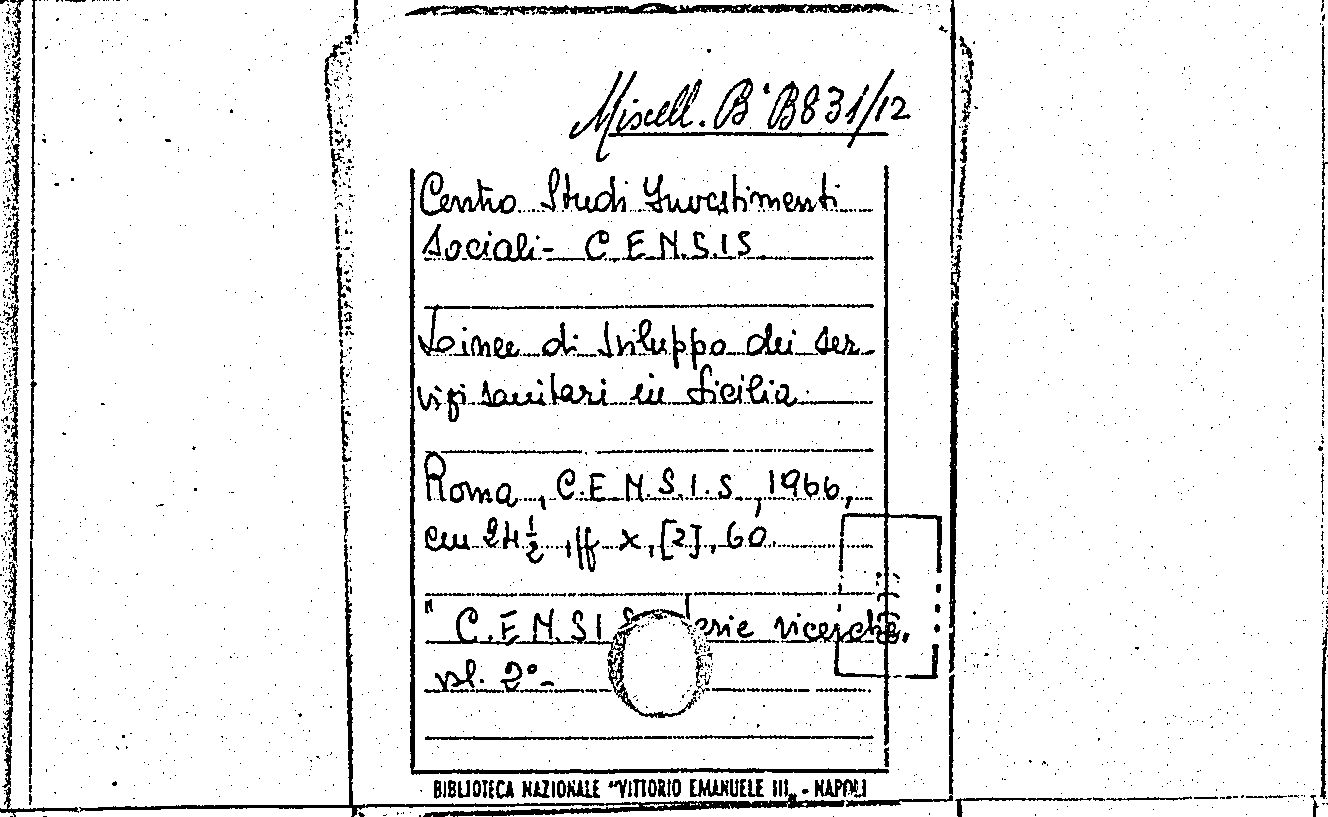 Miscell. B. B831/12
Centro Studi Investimenti
Sociali - C.E.N.S.I.S.
Linee di sviluppo dei ser-
vizi sanitari in Sicilia.
Roma, C.E.N.S.I.S, 1966,
cm 24½, ff x, [2], 60.
" C.E.N.S.I.S erie ricerche,
vol. 2º-
BIBLIOTECA NAZIONALE "VITTORIO EMANUELE III„ - NAPOLI